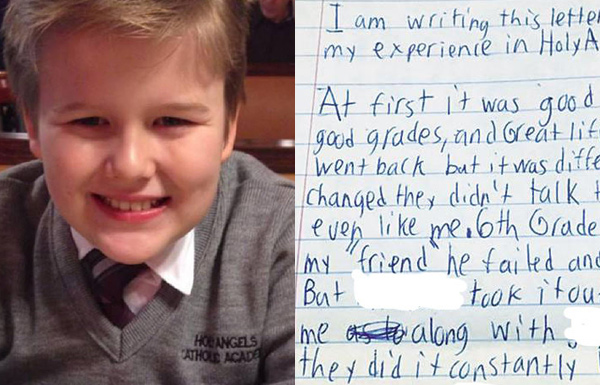 HOLY ANGELS
CATHOLIC ACADE
I am writing this letter
my experience in Holy A
At first it was good
good grades, and Great lif
went back but it was diffe
changed they didn't talk t
even like me. 6th Grade
my "friend" he failed and
But took it ou
me along with
they did it constantly